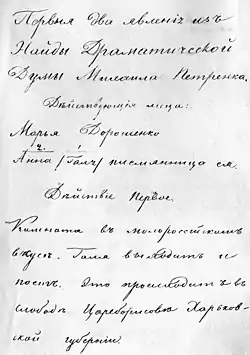 Первыя два явленія изъ
Найды Драматической
Думы Михаила Петренка.
Дѣйствующія лица:
Марья Дорошенко
Анна (Галя) письмянница ея.
Дѣйствіе Первое.
Комната въ малороссійскомъ
вкусѣ. Галя выходитъ и
поетъ. Это происходитъ въ
слободѣ Цареборисовѣ Харьков-
ской губерніи.